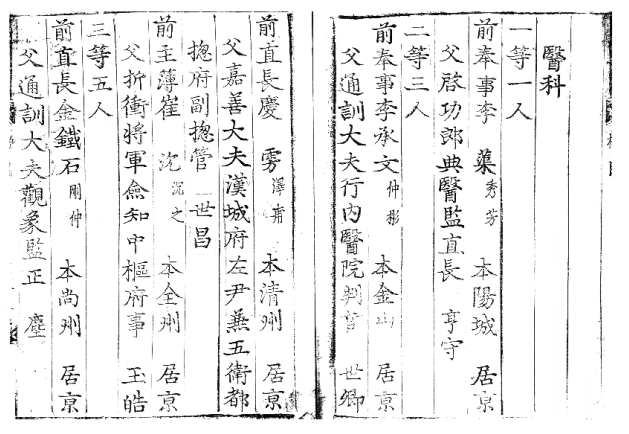 醫科
一等一人
前奉事李 蕖 秀芳 本陽城 居京
父啓功郎典醫監直長 亨守
二等三人
前奉事李承文 仲彬 本金山 居京
父通訓大夫行內醫院判官 世卿
前直長慶 雱 澤甫 本清州 居京
父嘉善大夫漢城府左尹兼五衛都
揔府副揔管 世昌
前主薄崔 沈 沉之 本全州 居京
父折衝將軍僉知中樞府事 玉皓
三等五人
前直長金鐵石 剛仲 本尚州 居京
父通訓大夫觀象監正